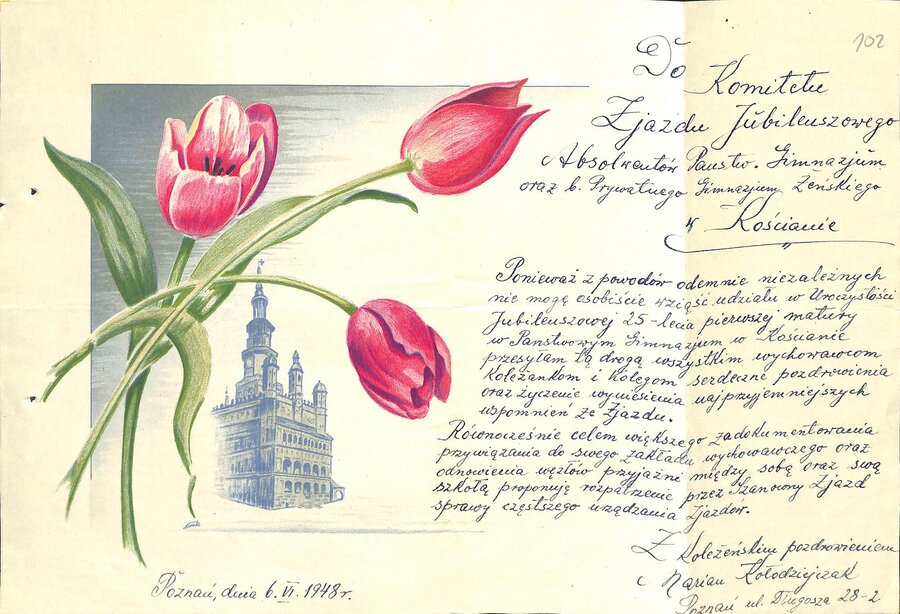 102
Do Komitetu
Zjazdu Jubileuszowego
Absolwentów Państw. Gimnazjum
oraz b. Prywatnego Gimnazjum Żeńskiego
w Kościanie
Ponieważ z powodów odemnie niezależnych
nie mogę osobiście wziąść udziału w Uroczystości
Jubileuszowej 25-lecia pierwszej matury
w Państwowym Gimnazjum w Kościanie
przesyłam tą drogą wszystkim wychowawcom
Koleżankom i Kolegom serdeczne pozdrowienia
oraz życzenie wyniesienia najprzyjemniejszych
wspomnień ze Zjazdu.
Równocześnie celem większego zadokumentowania
przywiązania do swego zakładu wychowawczego oraz
odnowienia węzłów przyjaźni między sobą oraz swą
szkołą proponuję rozpatrzenie przez Szanowny Zjazd
sprawy częstszego urządzania Zjazdów.
Z Koleżeńskim pozdrowieniem
Marian Kołodziejczak
Poznań ul. Długosza 28-2
Poznań, dnia 6. VI. 1948 r.